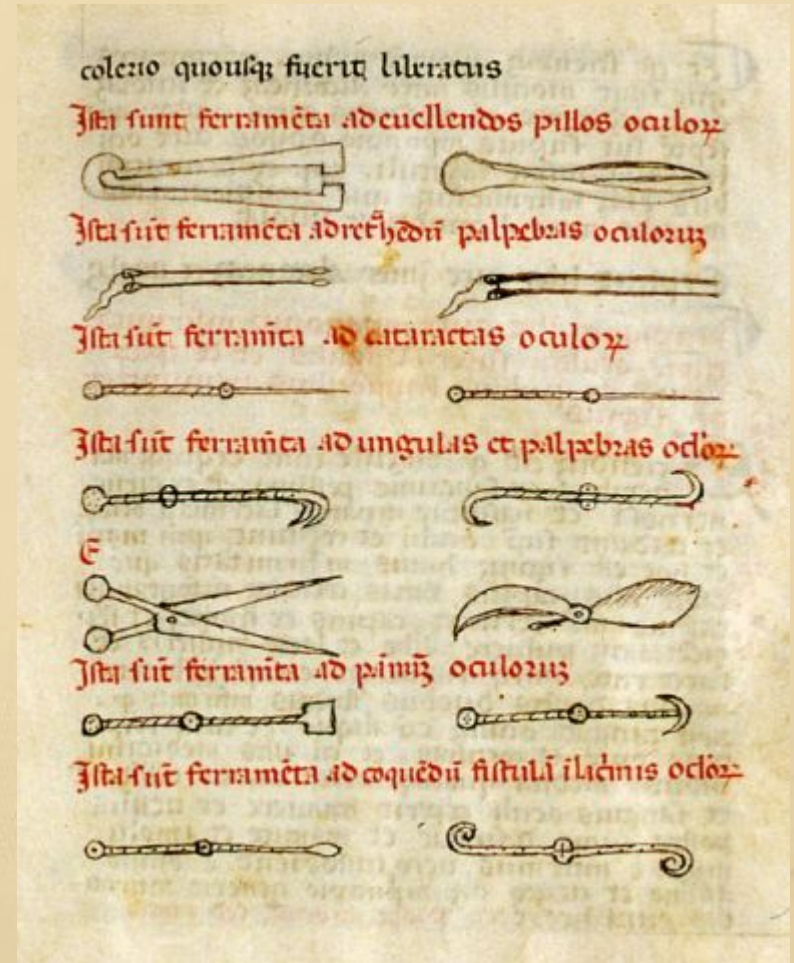 colerio quousqꝫ fuerit liberatus
Ista sunt ferramēta ad euellendos pillos oculoꝝ
Ista sūt ferramēta ad palpebras oculoruꝫ
Ista sūt ferram̄ta ad cataractas oculoꝝ
Ista sūt ferram̄ta ad ungulas et palpebras oclo᷒ꝝ
E
Ista sūt ferram̄ta ad oculoruꝫ
Ista sūt ferramēta ad coquēdū fistulā ī lac̄mis oclo᷒ꝝ